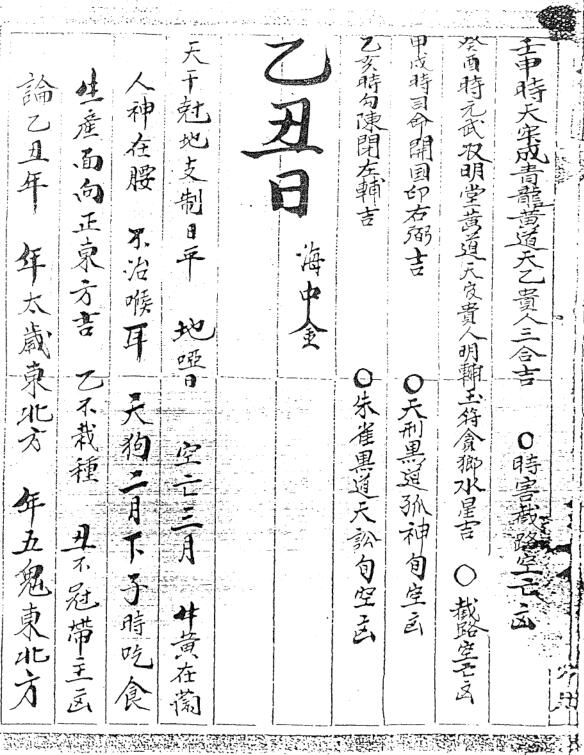 壬申時天牢成青龍黃道天乙貴人三合吉 〇時害截路空亡凶
癸酉時元武收明堂黃道天官貴人明輔玉符貪狼水星吉 〇截路空亡凶
甲戌時司命開國印右弼吉 〇天刑黑道孤神旬空凶
乙亥時勾陳閉左輔吉 〇朱雀黑道天訟旬空凶
乙丑日 海中金
天干尅地支制日平 地啞日 空亡三月 牛黃在
人神在腰 不治喉耳 天狗二月下子時吃食
生產面向正東方吉 乙不栽種 丑不冠帶主凶
論乙丑年 年太歲東北方 年五鬼東北方